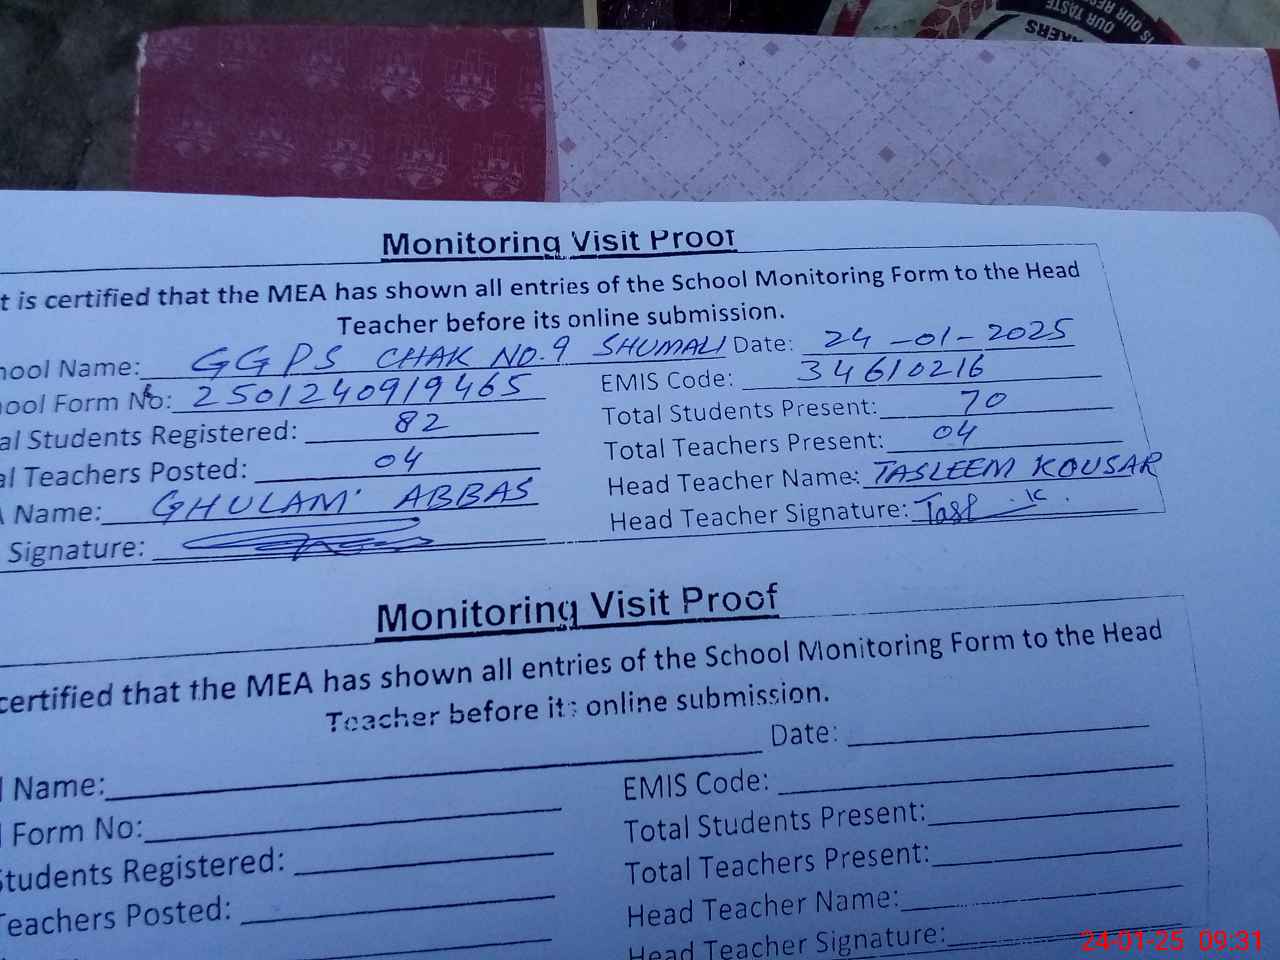 IS OUR RE
OUR TASTE
KERS
Monitoring Visit Proof
t is certified that the MEA has shown all entries of the School Monitoring Form to the Head
Teacher before its online submission.
hool Name: GGPS CHAK NO.9 SHUMALI Date: 24-01-2025
hool Form No: 2501240919465 EMIS Code: 34610216
al Students Registered: 82 Total Students Present: 70
al Teachers Posted: 04 Total Teachers Present: 04
A Name: GHULAM ABBAS Head Teacher Name: TASLEEM KOUSAR
Signature: Head Teacher Signature:
Monitoring Visit Proof
certified that the MEA has shown all entries of the School Monitoring Form to the Head
Teacher before its online submission.
l Name: Date:
l Form No: EMIS Code:
Students Registered: Total Students Present:
Teachers Posted: Total Teachers Present:
Head Teacher Name:
Head Teacher Signature:
24-01-25 09:31